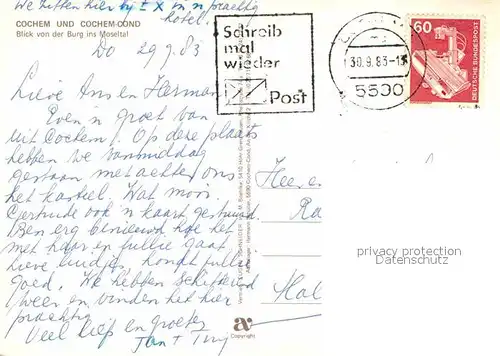 We zitten hier bij ± X in n prachtig
hotel.
COCHEM UND COCHEM-COND
Blick von der Burg ins Moseltal
Do 29.9.83
Lieve Ans en Herman
Even n groet van
uit Cochem. Op deze plaats
hebben we vanmiddag
gestaan met achter ons
het kasteel. Wat mooi.
Gertrude ook n kaart gestuurd.
Ben erg benieuwd hoe het
met haar en jullie gaat.
Lieve luidjes, houdt jullie
goed. We hebben schitterend
weer en vinden het hier
prachtig
Veel liefs en groeten
Jan + Tiny
Schreib
mal
wieder
Post
30.9.83-1
5590
60
DEUTSCHE BUNDESPOST
Copyright
privacy protection
Datenschutz